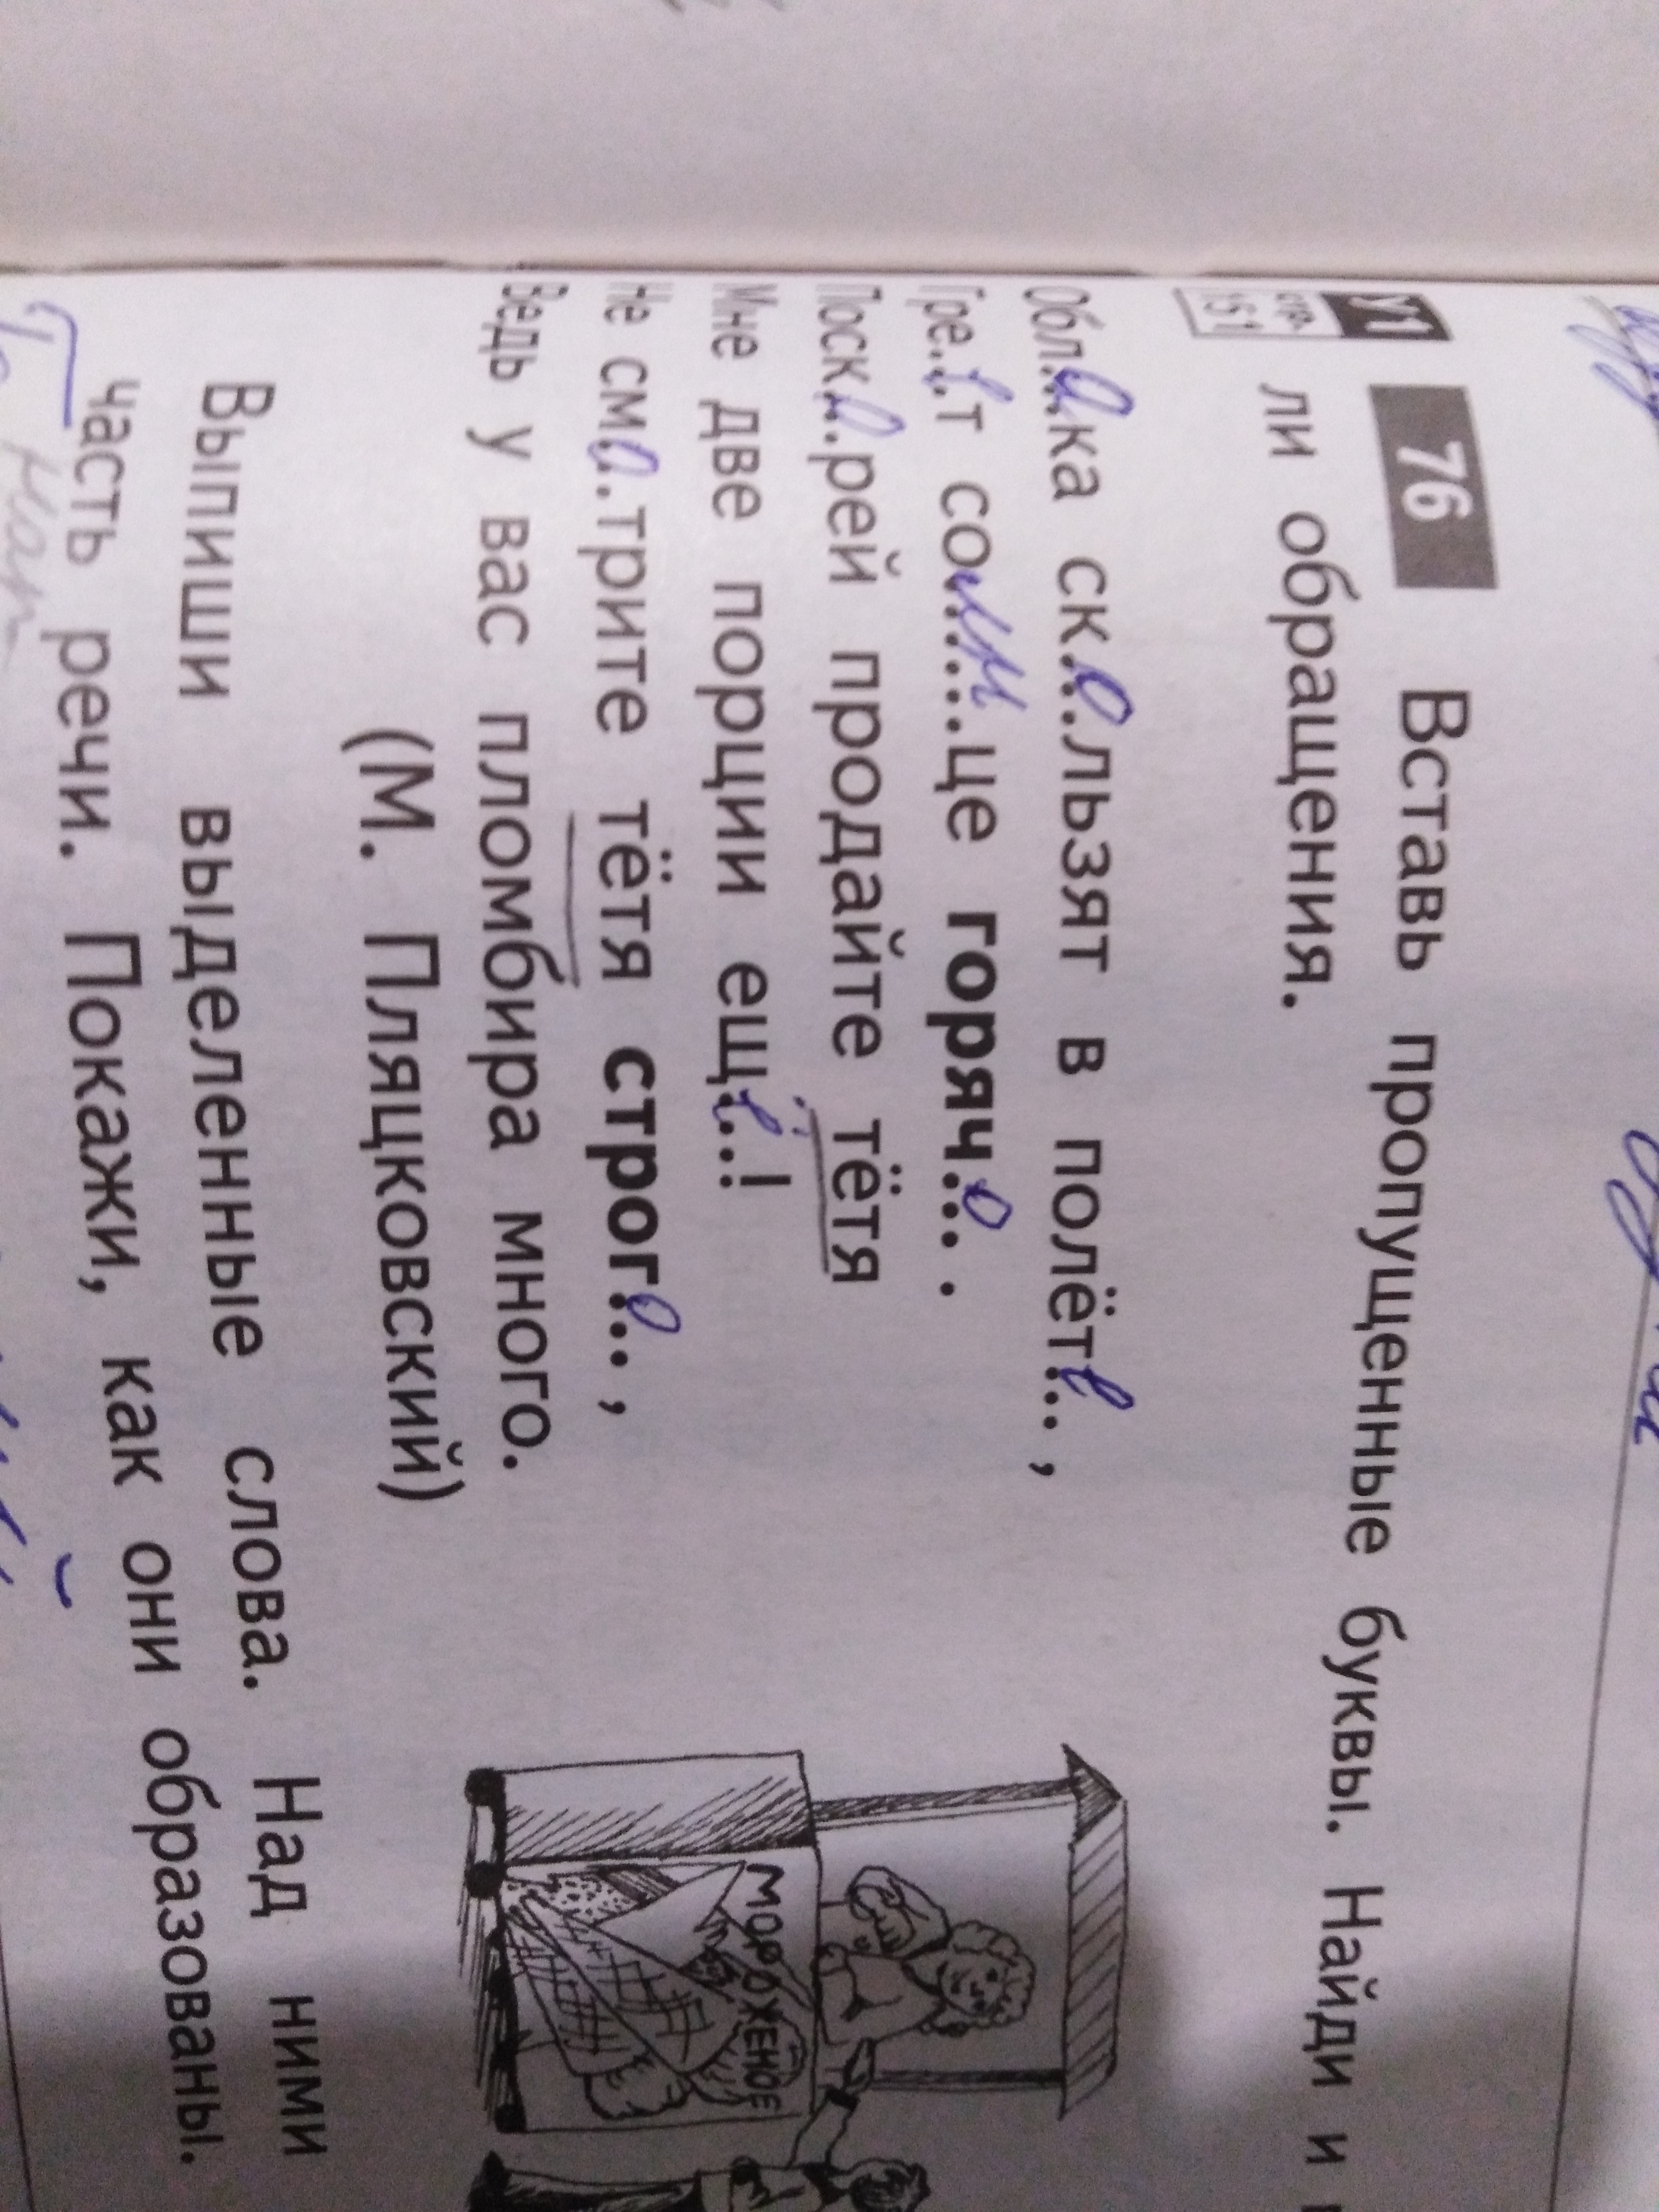 У1
стр.
151
76 Вставь пропущенные буквы. Найди и
ли обращения.
Обл..а.ка ск..о.льзят в полёт..е.. ,
Гре..е.т со..лн...це горяч..о.. .
Поск..о.рей продайте тётя
Мне две порции ещ..ё..!
Не см..о.трите тётя строг..о.. ,
Ведь у вас пломбира много.
(М. Пляцковский)
МОРОЖЕНОЕ
Выпиши выделенные слова. Над ними
часть речи. Покажи, как они образованы.